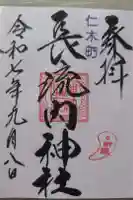 奉拝
仁木町
長流内神社
令和七年九月八日